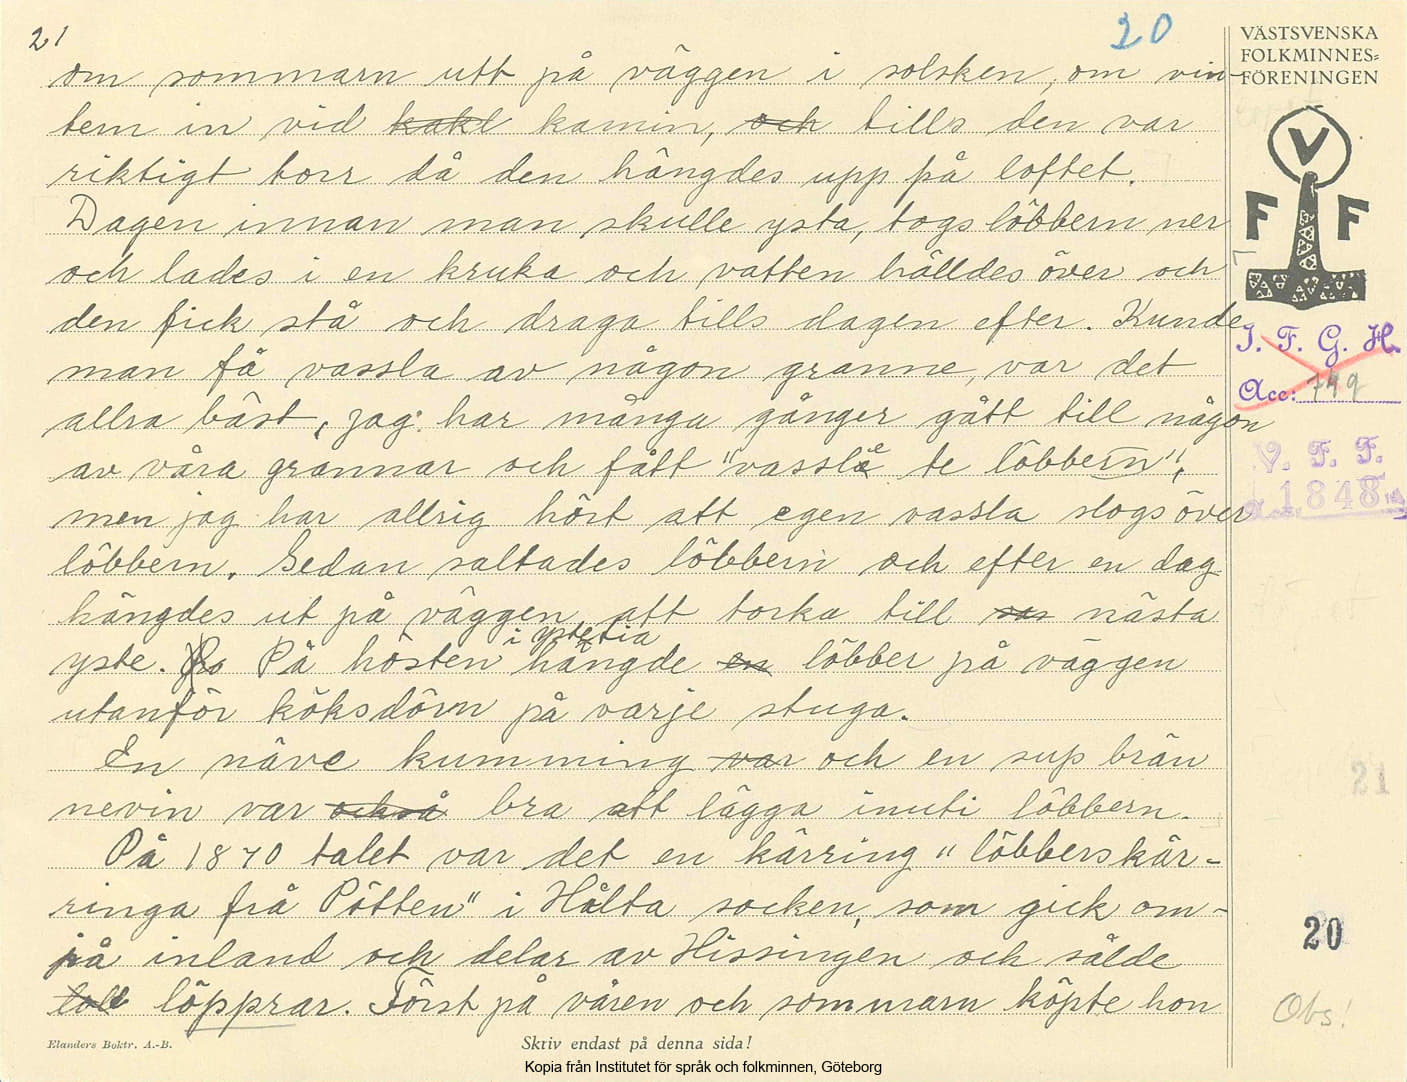 21
20
VÄSTSVENSKA
FOLKMINNES=
FÖRENINGEN
om sommarn utt på väggen i solsken, om vin-
tern in vid kakl kamin, och tills den var
riktigt torr då den hängdes upp på loftet.
Dagen innan man skulle ysta, togs löbbern ner
och lades i en kruka och vatten hälldes över och
den fick stå och draga tills dagen efter. Kunde
man få vassla av någon granne, var det
allra bäst, jag har många gånger gått till någon
av våra grannar och fått "vasslä te löbbern",
men jag har allrig hört att egen vassla slogs över
löbbern. Sedan saltades löbbern och efter en dag
hängdes ut på väggen att torka till nästa
i ystetia
yste. På hösten hängde en löbber på väggen
utanför köksdörrn på varje stuga.
En näve kumming var och en sup brän
nevin var också bra att lägga inuti löbbern.
På 1870 talet var det en kärring "löbberskär-
ringa frå Pötten" i Hålta socken, som gick om-
på inland och delar av Hissingen och sålde
löpprar. Först på våren och sommarn köpte hon
V
F F
I. F. G. H.
Acc: 749
V. F. F.
1848
21
20
Obs!
Elanders Boktr. A.-B.
Skriv endast på denna sida!
Kopia från Institutet för språk och folkminnen, Göteborg